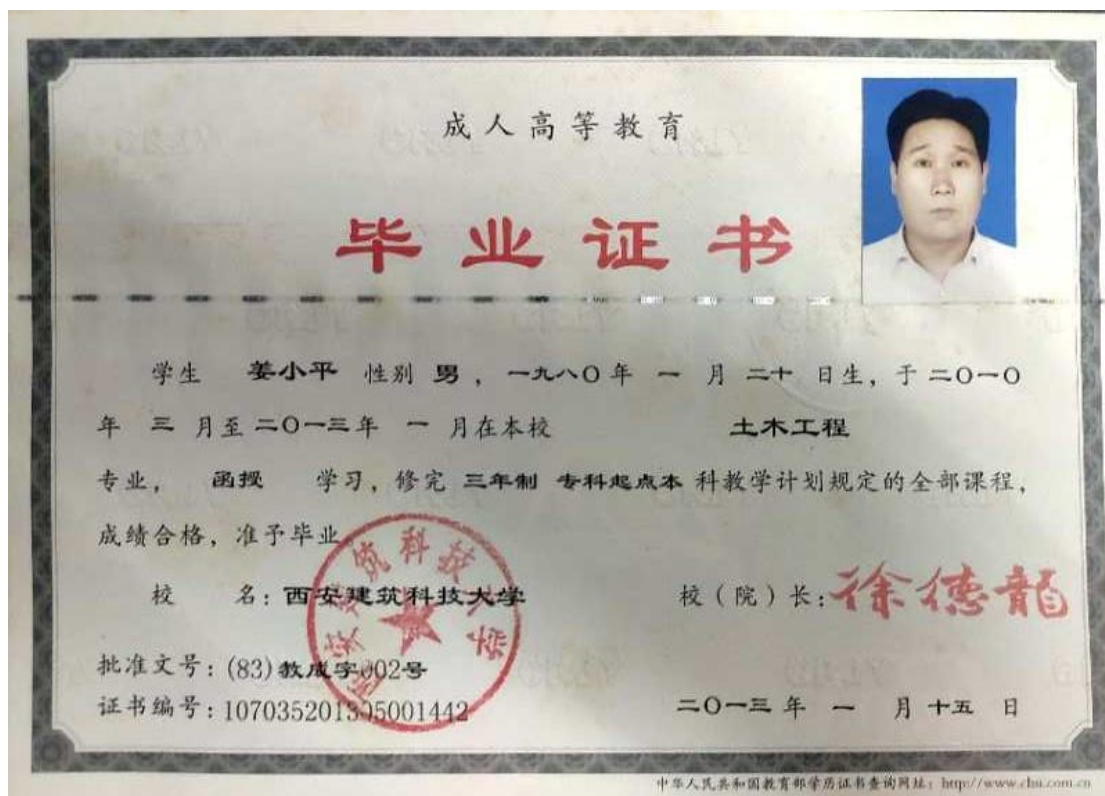 成人高等教育
毕业证书
学生 姜小平 性别 男，一九八〇年 一 月 二十 日生，于 二〇一〇
年 三 月至 二〇一三年 一 月在本校 土木工程
专业， 函授 学习，修完 三年制 专科起点本 科教学计划规定的全部课程，
成绩合格，准予毕业。
校 名：西安建筑科技大学
校（院）长：徐德龍
西安建筑科技大学
批准文号：(83)教成字002号
证书编号：107035201305001442
二〇一三 年 一 月 十五 日
中华人民共和国教育部学历证书查询网址：http://www.chsi.com.cn